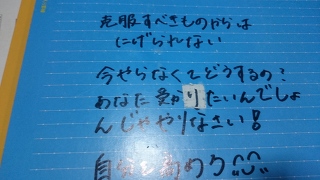 克服すべきものからは
にげられない
今やらなくてどうするの?
あなた受かりたいんでしょ
んじゃやりなさい!
自分を高めろ